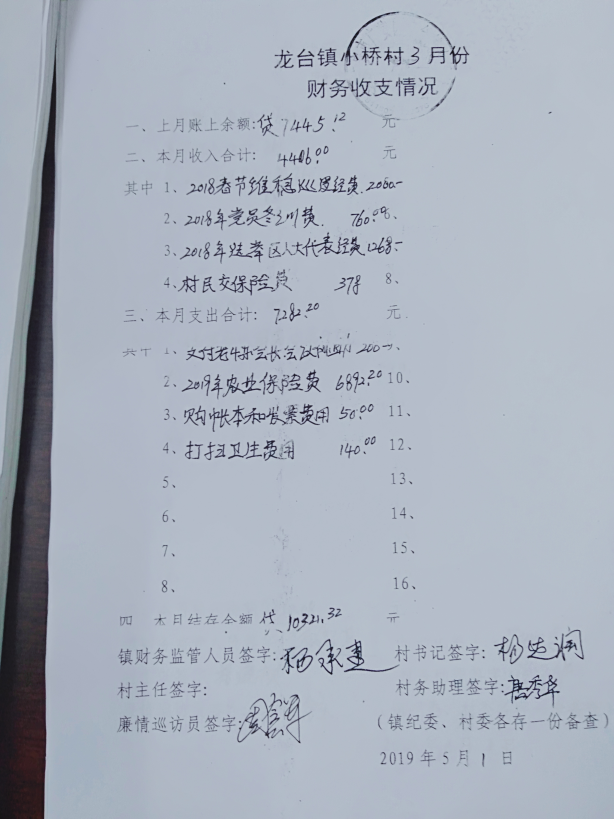 龙台镇小桥村3月份
财务收支情况
一、上月账上余额:贷7445.12 元
二、本月收入合计: 4406.00 元
其中 1、2018春节维稳 经费 2000-
2、2018年党员冬训费 760.00
3、2018年选举区人大代表经费1268-
4、村民交保险费 378 8、
三、本月支出合计: 7282.20 元
其中 1、支付老 会长会议 200-
2、2019年农业保险费 6892.20 10、
3、购帐本和发票费用 50.00 11、
4、打扫卫生费用 140.00 12、
5、 13、
6、 14、
7、 15、
8、 16、
四、本月结存余额 贷 10321.32 元
镇财务监管人员签字: 村书记签字:
村主任签字: 村务助理签字:
廉情巡访员签字: (镇纪委、村委各存一份备查)
2019年5月1日